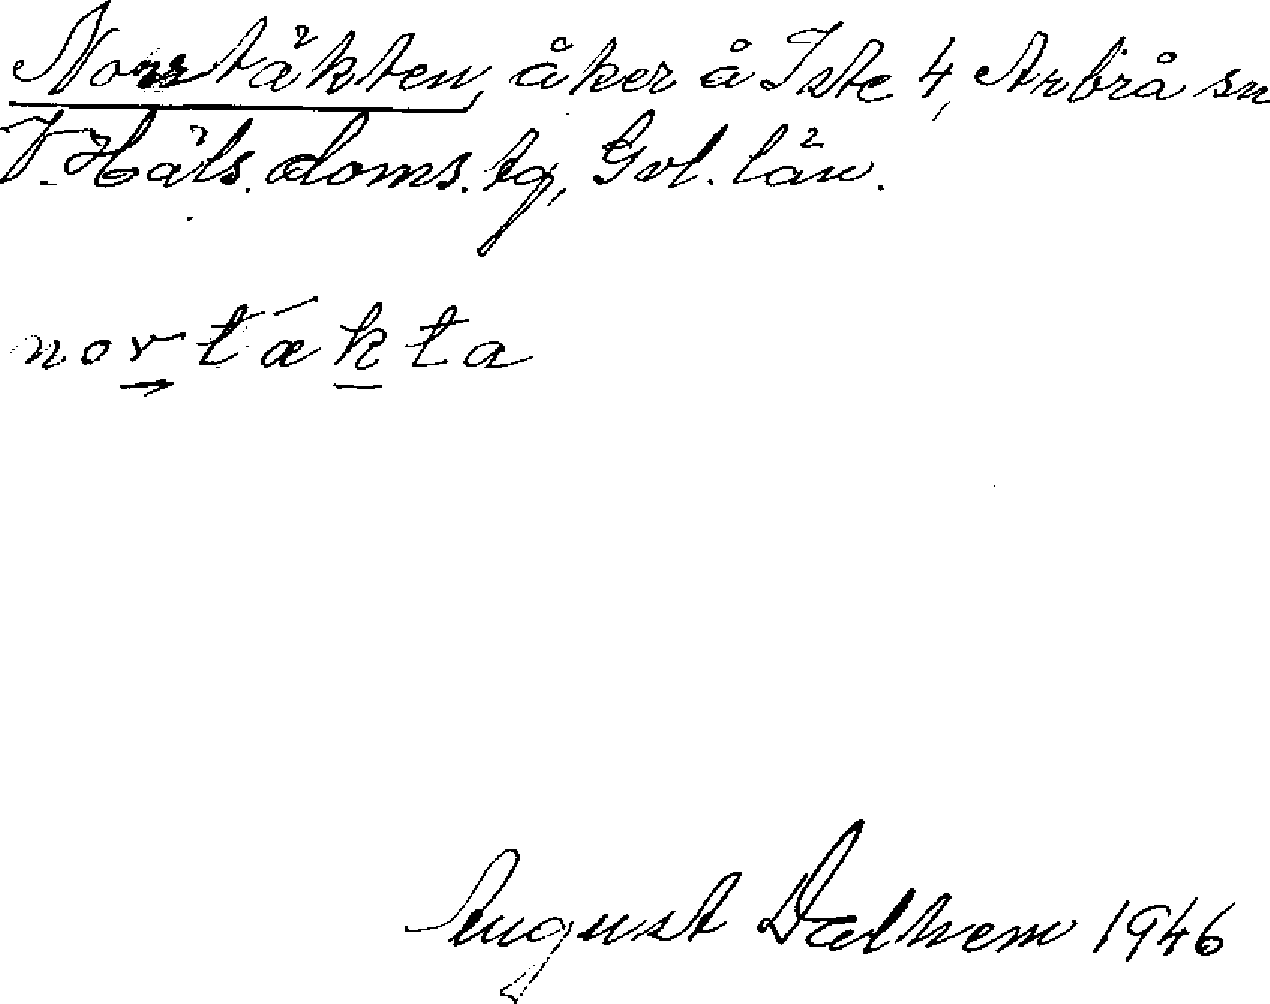 Norrtäkten, åker å Iste 4, Arbrå sn
V. Häls. doms. tg, Gvl. län.
nortǽkta
August Dælhem 1946